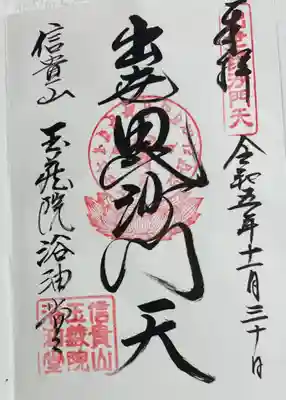 奉拝
出世毘沙門天
令和五年十一月三十日
出世毘沙門天
信貴山
玉蔵院浴油堂
信貴山
玉蔵院
浴油堂